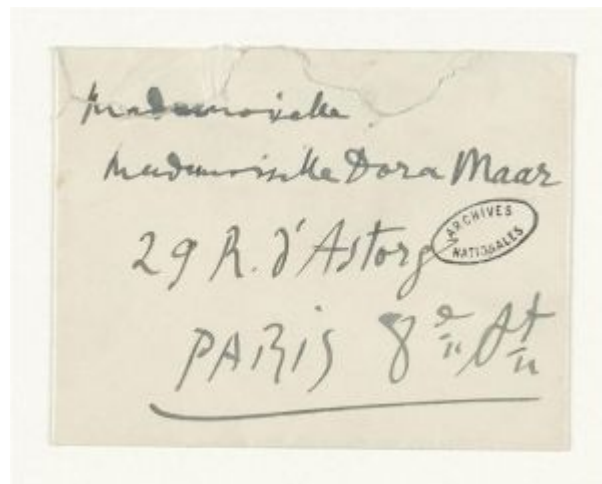 Mademoiselle
Mademoiselle Dora Maar
29 R. d'Astorg
ARCHIVES
NATIONALES
PARIS 8e At